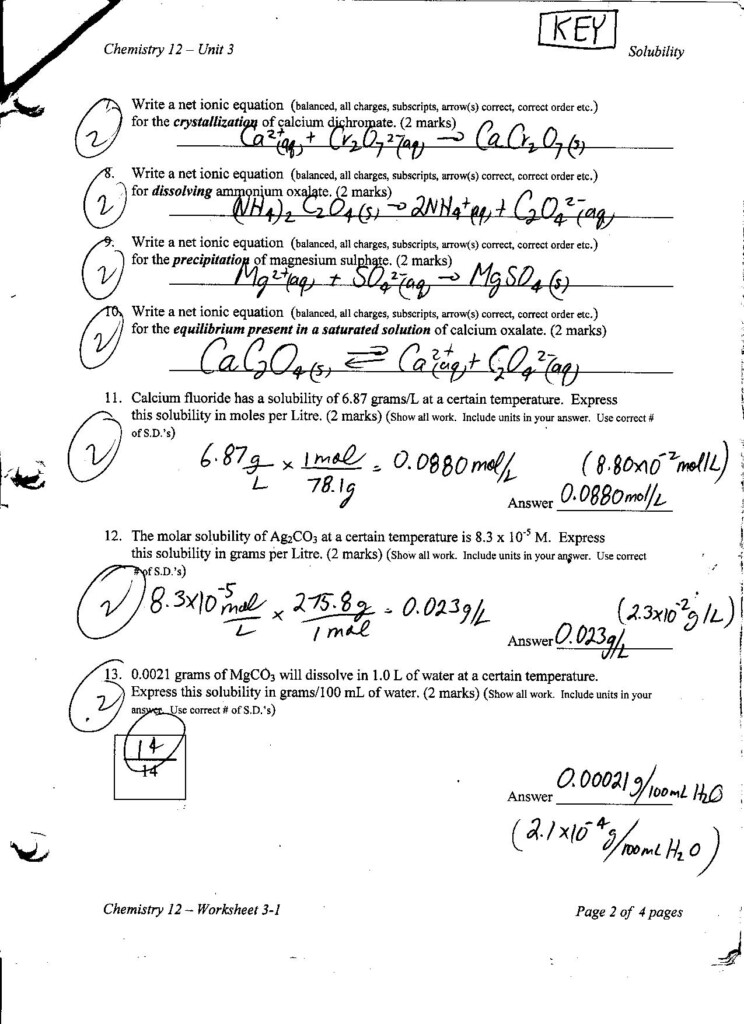 KEY
Chemistry 12 – Unit 3 Solubility
7. Write a net ionic equation (balanced, all charges, subscripts, arrow(s) correct, correct order etc.)
for the crystallization of calcium dichromate. (2 marks)
2 Ca²⁺(aq) + Cr₂O₇²⁻(aq) → CaCr₂O₇(s)
8. Write a net ionic equation (balanced, all charges, subscripts, arrow(s) correct, correct order etc.)
for dissolving ammonium oxalate. (2 marks)
2 (NH₄)₂C₂O₄(s) → 2NH₄⁺(aq) + C₂O₄²⁻(aq)
9. Write a net ionic equation (balanced, all charges, subscripts, arrow(s) correct, correct order etc.)
for the precipitation of magnesium sulphate. (2 marks)
2 Mg²⁺(aq) + SO₄²⁻(aq) → MgSO₄(s)
10. Write a net ionic equation (balanced, all charges, subscripts, arrow(s) correct, correct order etc.)
for the equilibrium present in a saturated solution of calcium oxalate. (2 marks)
2 CaC₂O₄(s) ⇌ Ca²⁺(aq) + C₂O₄²⁻(aq)
11. Calcium fluoride has a solubility of 6.87 grams/L at a certain temperature. Express
this solubility in moles per Litre. (2 marks) (Show all work. Include units in your answer. Use correct #
of S.D.'s)
2 6.87 g/L × 1 mol/78.1g = 0.0880 mol/L (8.80x10⁻² mol/L)
Answer 0.0880 mol/L
12. The molar solubility of Ag₂CO₃ at a certain temperature is 8.3 x 10⁻⁵ M. Express
this solubility in grams per Litre. (2 marks) (Show all work. Include units in your answer. Use correct
# of S.D.'s)
2 8.3x10⁻⁵ mol/L × 275.8g/1 mol = 0.023 g/L (2.3x10⁻² g/L)
Answer 0.023 g/L
13. 0.0021 grams of MgCO₃ will dissolve in 1.0 L of water at a certain temperature.
Express this solubility in grams/100 mL of water. (2 marks) (Show all work. Include units in your
answer. Use correct # of S.D.'s)
2
14
14
Answer 0.00021 g/100mL H₂O
(2.1 x10⁻⁴ g/100mL H₂O)
Chemistry 12 – Worksheet 3-1 Page 2 of 4 pages